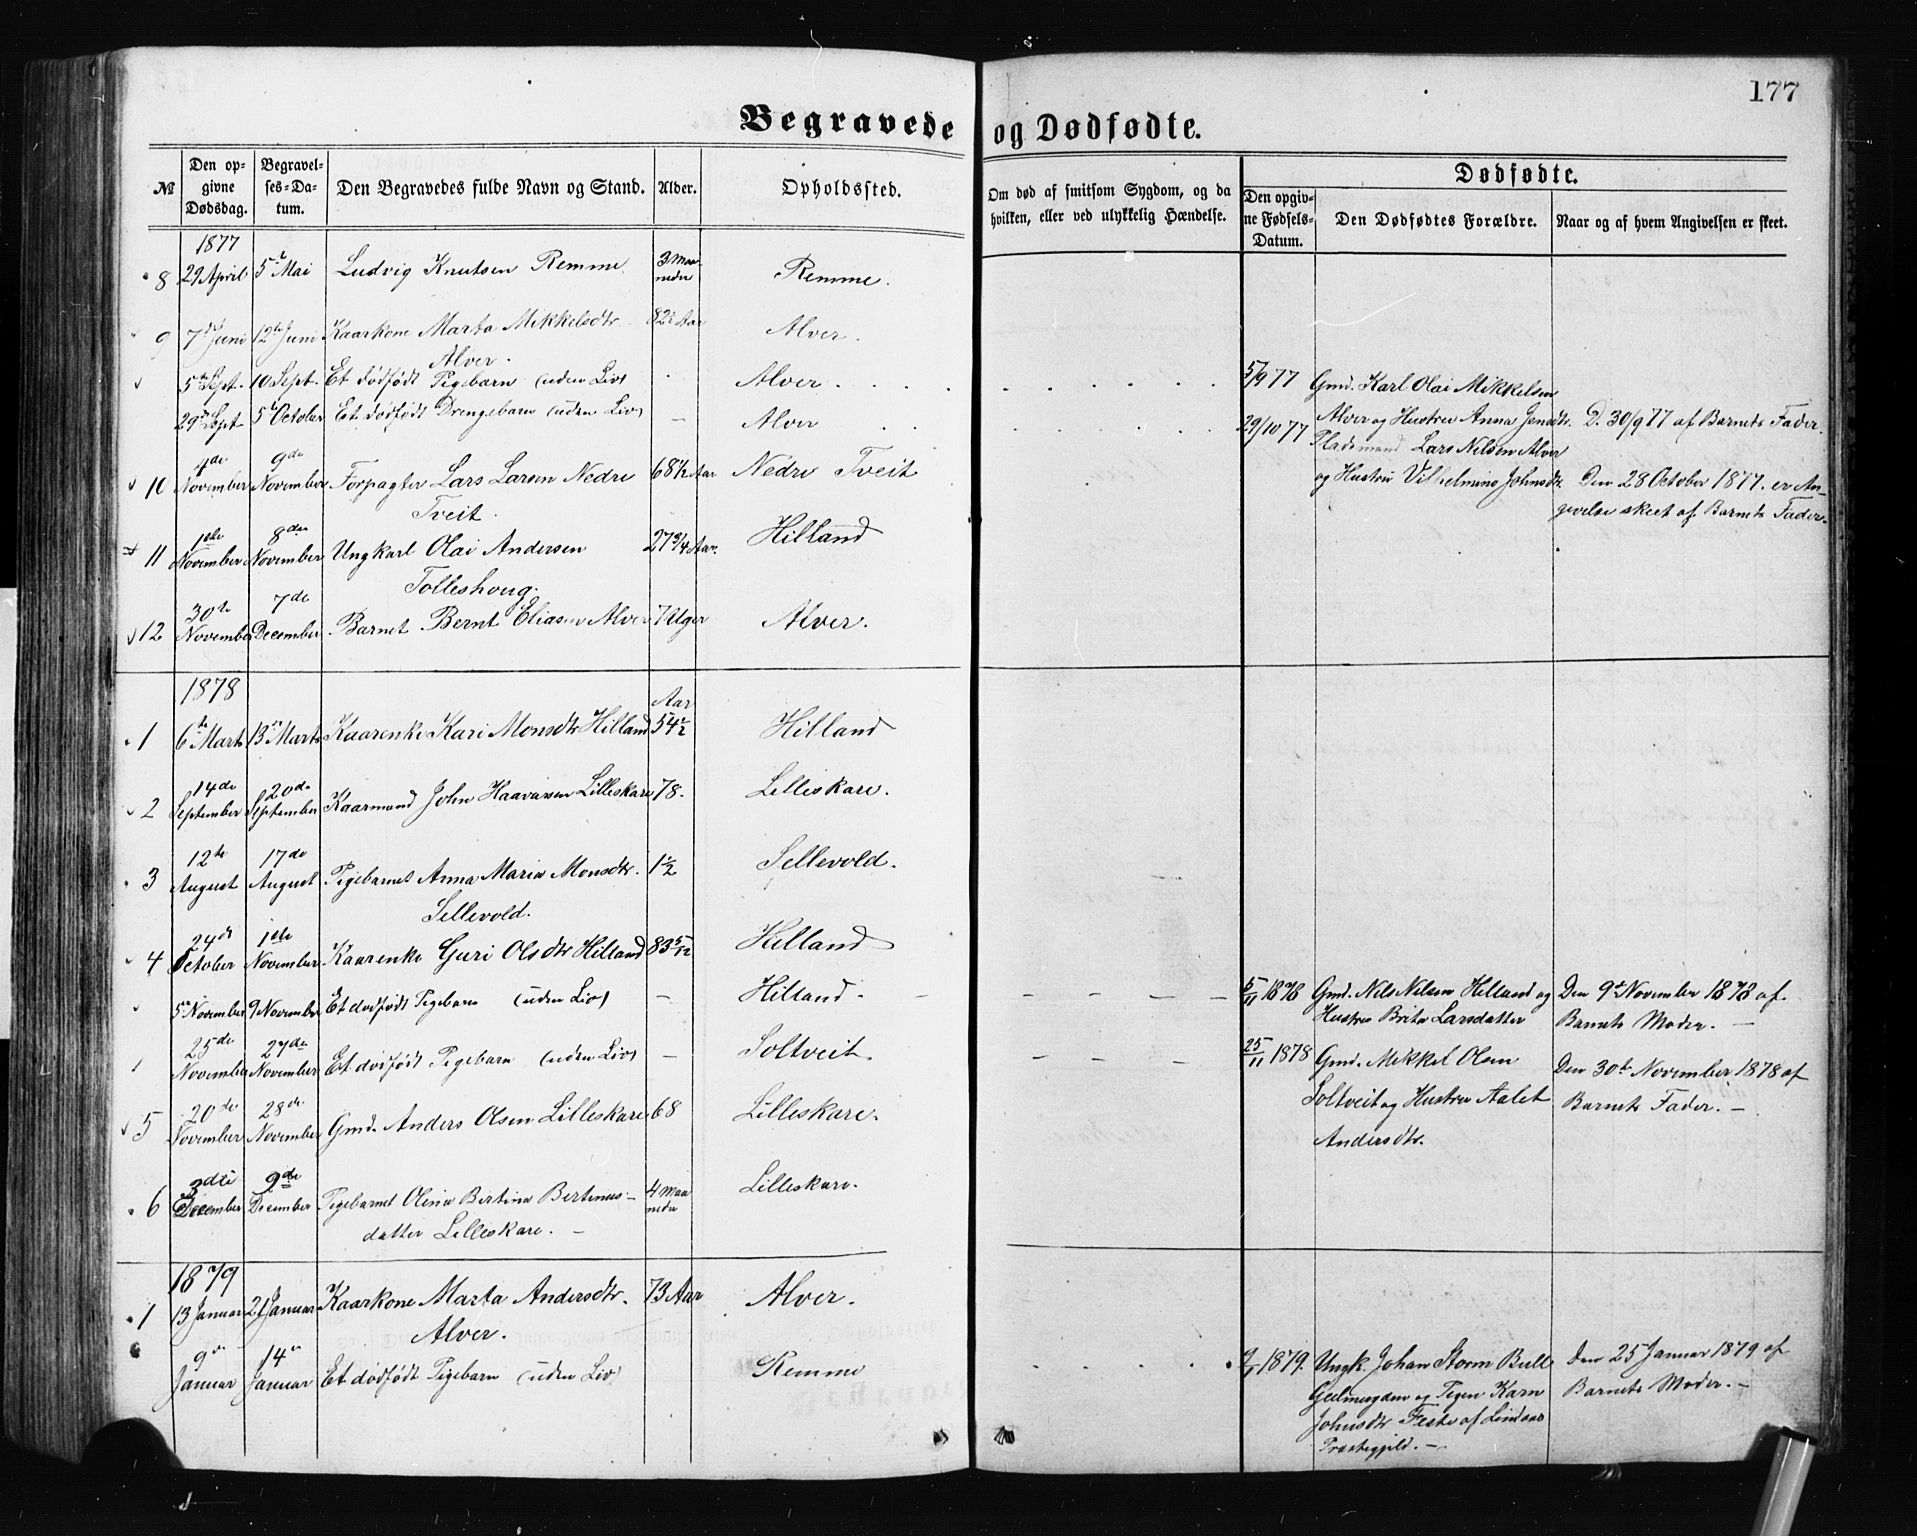 177
Begravede og Dødfødte.
№
Den opgivne Dødsdag.
Begravelses-Datum.
Den Begravedes fulde Navn og Stand.
Alder.
Opholdssted.
Om død af smitsom Sygdom, og da hvilken, eller ved ulykkelig Hændelse.
Dødfødte.
Den opgivne Fødsels-Datum.
Den Dødfødtes Forældre.
Naar og af hvem Angivelsen er skeet.
1877
8 29 April 5te Mai Ludvig Knutsen Remme 3 Maaneder Remme.
9 7de Juni 12te Juni Kaarkone Marta Mikkelsdtr. 82 Aar Alver.
Alver.
5te Sept. 10 Sept. Et dødfødt Pigebarn (uden Liv) Alver . 5/9 77 Gmd. Karl Olai Mikkelsen
Alver og Hustru Anna Jensdtr. D. 30/9 77 af Barnets Fader.
29de Sept. 5te October Et dødfødt Drengebarn (uden Liv) — Alver 29/10 77 Pladsmand Lars Nilsen Alver
og Hustru Vilhelmine Johnsdtr. Den 28 October 1877. er An-
givelse skeet af Barnets Fader.
10 4de November 9de November Forpagter Lars Larsen Nedre 68 1/2 Aar Nedre Tveit
Tveit.
11 1ste November 8de November Ungkarl Olai Andersen 27 3/4 Aar. Hilland
Tolleshoug.
12 30te November 7de December Barnet Bernt Eliasen Alver 7 Uger Alver.
1878
Aar
1 6te Marts 13de Marts Kaarenke Kari Monsdtr Hilland 54 1/2 Hilland
2 14de September 20de September Kaarmand John Haavarsen Lilleskare 78. Lilleskare.
3 12te August 17de August Pigebarnet Anna Maria Monsdtr. 1 1/2 Sellevold.
Sellevold.
4 24de October 1ste November Kaarenke Guri Olsdtr Hilland 83 5/12 Hilland
5te November 9 November Et dødfødt Pigebarn (uden Liv) — Hilland. — 5/11 1878 Gmd. Nils Nilsen Hilland og Den 9de November 1878 af
Hustru Brita Larsdatter Barnets Moder. —
25de November 27de November Et dødfødt Pigebarn (uden Liv) — Soltveit. 25/11 1878 Gmd. Mikkel Olsen Den 30te November 1878 af
Soltveit og Hustru Aalet Barnets Fader. —
Andersdtr.
5 20de November 28de November Gmd. Anders Olsen Lilleskare 68 Lilleskare.
6 3die December 9de December Pigebarnet Olina Bertina Bertinus- 4 Maaneder Lilleskare.
datter Lilleskare. —
1879
1 13 Januar 21 Januar Kaarkone Marta Andersdtr. 73 Aar Alver.
Alver.
9de Januar 14de Januar Et dødfødt Pigebarn (uden Liv) Remme 9/1 1879. Ungk. Johan Storm Bull Den 25 Januar 1879 af
Geelmuyden og Pigen Karn Barnets Moder. —
Johnsdtr Feste af Lindaas
Præstegjeld. —